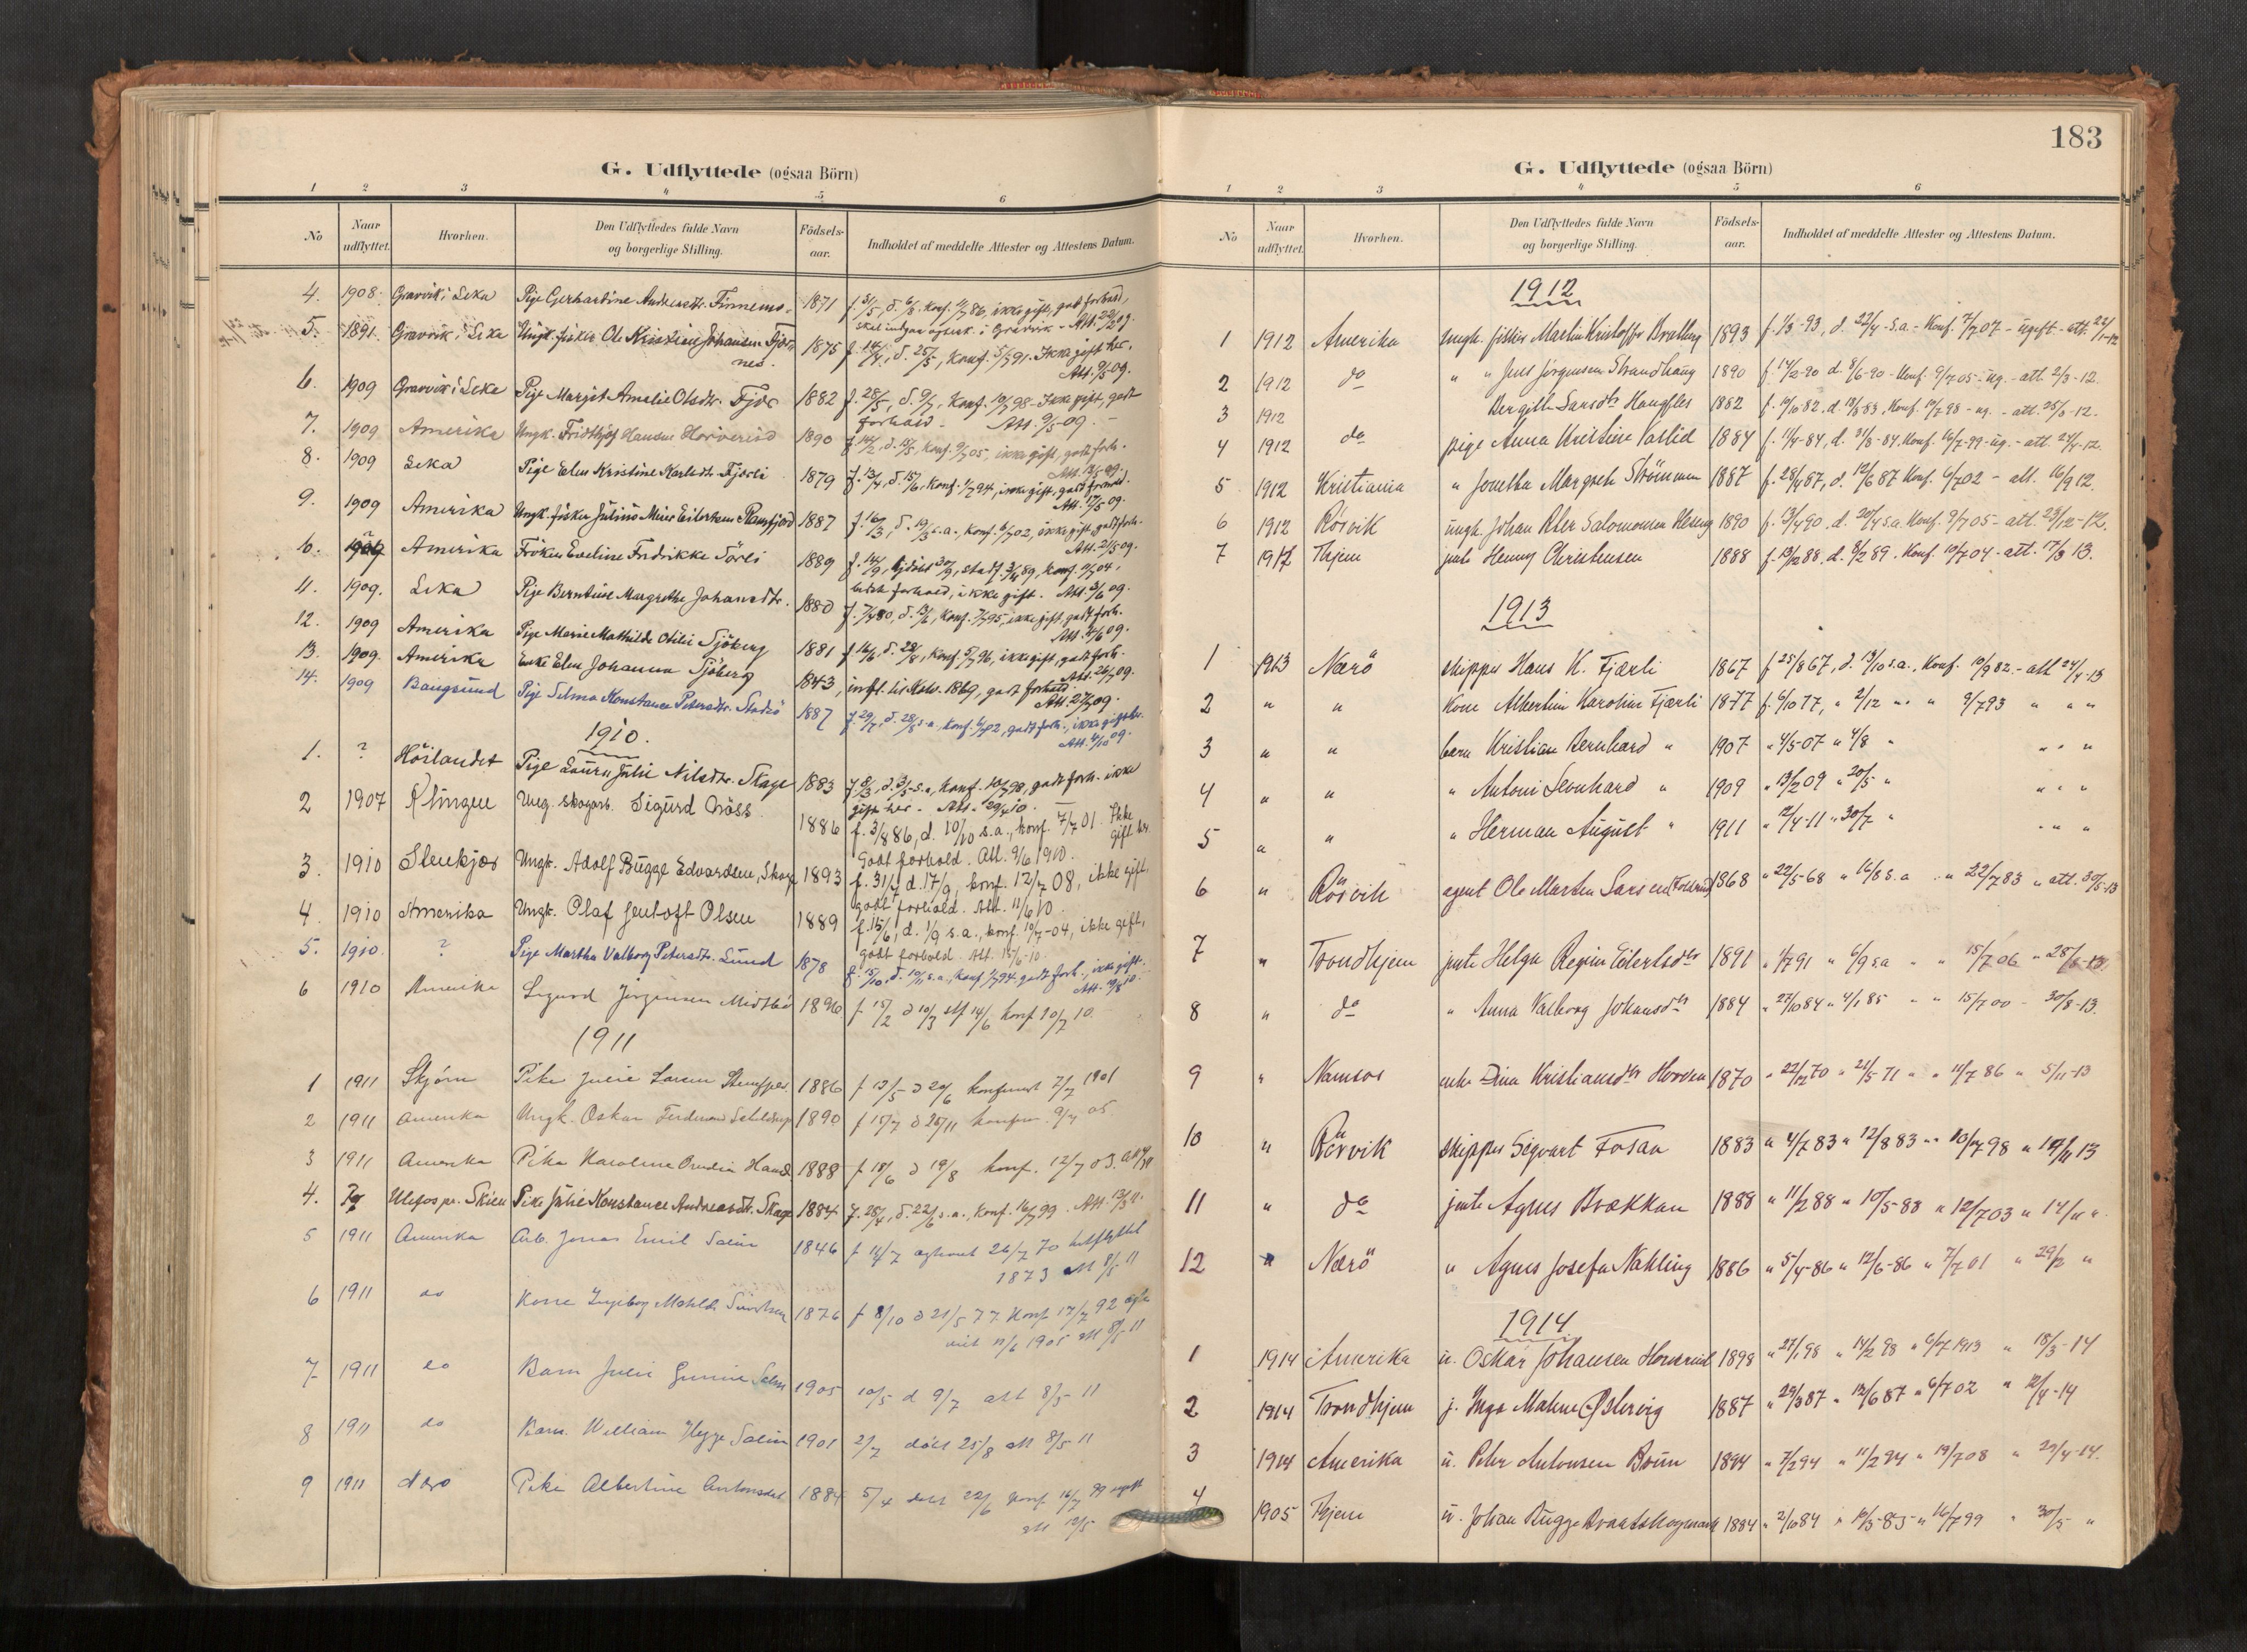 G. Udflyttede (ogsaa Börn)
1 2 3 4 5 6
No Naar udflyttet. Hvorhen. Den Udflyttedes fulde Navn og borgerlige Stilling. Födsels-aar. Indholdet af meddelte Attester og Attestens Datum.
4. 1908. Gravvik i Leka Pige Gerhardine Andreasdtr. Finnemo. 1871 f. 5/5, d. 6/8, konf. 11/7 86, ikke gift, godt forhold,
skal indgaa ægtesk. i Gravvik - Att. 22/2 09.
5. 1891. Gravvik i Leka Ungk. fisker Ole Kristian Johansen Fjær- 1875 f. 14/4, d. 25/5, konf. 5/7 91. Ikke gift her.
nes. Att. 9/5 09.
6. 1909 Gravvik i Leka Pige Margit Amalie Olsdtr. Fjær 1882 f. 28/5, d. 9/7, konf. 10/7 98 - Ikke gift, godt
forhold - Att. 9/5 09. -
7. 1909 Amerika Ungk. Fridthjof Hansen Horvereid 1890 f. 14/2, d. 11/5, konf. 9/7 05, ikke gift, godt forh.
8. 1909 Leka Pige Elen Kristine Karlsdtr. Fjærli 1879 f. 13/4, d. 15/6, konf. 1/7 94, ikke gift, godt forhold.
Att. 17/5 09.
9. 1909 Amerika Ungk. fisker Julius Meier Eilertsen Ramfjord 1887 f. 16/3, d. 19/3 s.a., konf. 6/7 02, ikke gift, godt forh.
Att. 21/5 09.
10. 1909 Amerika Fröken Eveline Fredrikke Sörli 1889 f. 14/9, hjdöbt 30/9, stadf. 3/4 89, konf. 11/7 04,
bedste forhold, ikke gift. Att. 3/6 09.
11. 1909. Leka Pige Berntine Margrethe Johansdtr. 1880 f. 7/4 80, d. 13/6, konf. 7/7 95, ikke gift, godt forh.
Att. 4/6 09.
12. 1909 Amerika Pige Marie Mathilde Otilie Sjöberg 1881 f. 16/6, d. 28/8, konf. 5/7 96, ikke gift, godt forh.
Att. 26/7 09.
13. 1909. Amerika Enke Elen Johanna Sjöberg 1843, indfl. til Kolv. 1869, godt forhold.
Att. 27/7 09.
14. 1909 Bangsund Pige Selma Konstance Petersdtr. Stadsö 1887 f. 29/7, d. 28/8 s.a., konf. 6/7 02, godt forh., ikke gift her.
Att. 4/10 09.
1910.
1. ? Höilandet Pige Laura Julie Nilsdtr. Skage 1883 f. 8/3, d. 3/5 s.a., konf. 10/7 98, godt forh. ikke
gift her. Att. 29/4 10.
2 1907 Klingen Ung. skogarb. Sigurd Næss. 1886 f. 3/8 86, d. 10/10 s.a., konf. 7/7 01. Ikke gift her.
Godt forhold. Att. 9/6 1910.
3. 1910 Stenkjær Ungk. Adolf Bugge Edvardsen, Skage 1893 f. 31/7 d. 17/9, konf. 12/7 08, ikke gift.
godt forhold. Att. 11/6 10.
4. 1910 Amerika Ungk. Olaf Jentoft Olsen 1889 f. 15/6, d. 1/9 s.a., konf. 10/7-04, ikke gift,
godt forhold. Att. 15/6-10.
5. 1910. ? Pige Martha Valborg Petersdtr. Lund 1878 f. 15/10, d. 10/11 s.a., konf. 1/7 94, godt forh., ikke gift.
Att. 19/8 10.
6 1910 Amerika Sigurd Jörgensen Midtbö 1896 f 15/2 d 10/3 stf 14/6 konf 10/7 10.
1911
1 1911 Skjörn Pike Julie Larsen 1886 f 13/5 d 20/6 konfirmert 7/7 1901
2 1911 Amerika Ungk. Oskar Ferdinand Schildrup 1890 f 15/7 d 25/11 konfirm. 9/7 05.
3 1911 Amerika Pike Karoline Haug 1888 f 18/6 d 19/8 konf. 12/7 03.
4. Ulefos pr. Skien Pike Julie Konstance Andreasdtr. Skage 1884 f. 28/4, d. 22/6 s.a., konf. 16/7 99. Att. 13/3 11.
5 1911 Amerika Arb. Jonas Emil Salin 1846 f 14/7 26/7 70
1873 att 8/5 11
6 1911 do Kone Ingeborg Mathilde 1876 f 8/10 d 21/5 77 konf 17/7 92 egte
viet 11/6 1905 att 8/5 11
7 1911 do Barn Julie Gunine Salin 1905 10/5 d 9/7 att 8/5 11
8 1911 do Barn William Hegge Salin 1901 2/7 döbt 25/8 att 8/5 11
9 1911 do Pike Albertine Antonsdat 1884 5/4 döbt 22/6 konf 16/7 99 ugift
att 12/5
183
G. Udflyttede (ogsaa Börn)
1 2 3 4 5 6
No Naar udflyttet. Hvorhen. Den Udflyttedes fulde Navn og borgerlige Stilling. Födsels-aar. Indholdet af meddelte Attester og Attestens Datum.
1912
1 1912 Amerika Ungk. fisker Martin Kristoffer Bratberg 1893 f. 1/3-93, d. 22/4-s.a.- Konf. 7/7 07 - ugift - att. 22/1-12
2 1912 do " " Jens Jörgensen Strandhaug 1890 f. 14/2-90 d. 8/6-90 - Konf. 9/7 05 - ug. - att. 2/3-12.
3 1912 Bergith Larsdtr 1882 f. 19/10 82, d. 13/5 83, Konf. 10/7 98 - ug. - att. 25/3-12.
4 1912 do pige Anna Kristine Vaslid 1884 f. 11/4-84, d. 31/8-84. Konf. 16/7-99 - ug. - att. 24/4-12.
5 1912 Kristiania " Jonetha Margrete Strömmen 1887 f. 28/4 87, d. 12/6 87 Konf. 6/7 02 - att. 16/9 12.
6 1912 Rörvik ungk. Johan Peter Salomonsen 1890 f. 13/4 90, d. 20/4 s.a. Konf. 9/7 05 - att. 23/12-12.
7 1912 Thjem jente Henny Christensen 1888 f. 13/12 88, d. 8/2 89. Konf. 10/7 04 - att. 17/3 13.
1913
1 1913 Nærö skipper Hans K. Fjærli 1867 f 25/8 67, d. 13/10 s.a., Konf. 10/9 82 - att 24/4-13
2 " " Kone Albertine Karoline Fjærli 1877 f. 6/10 77, " 2/12 " " " 9/7 93 " " "
3 " " barn Kristian Bernhard " 1907 " 4/5-07 " 4/8 " " " "
4 " " " Antoni Leonhard " 1909 " 13/2 09 " 20/5 " " " "
5 " " " Herman August " 1911 " 12/4-11 " 30/7 " " " "
6 " Rörvik agent Ole Martin Larsen 1868 " 22/5-68 " 16/8 s.a " " 22/7 83 " att. 30/5-13
7 " Trondhjem jente Helga Regine Eilertsdtr 1891 " 1/7 91 " 6/9 s.a " " 15/7 06 " 28/8-13.
8 " do " Anna Valborg Johansdtr 1884 " 27/10 84 " 4/1 85 " " 15/7 00 - 30/8-13.
9 " Namsos enke Dina Kristiansdtr 1870 " 22/12 70 " 21/5-71 " " 11/7 86 " 5/11-13
10 " Rörvik skipper Sigvart Fosaa 1883 " 4/7 83 " 12/8 83 " " 10/7 98 " 14/11 13
11 " do jente Agnes Brækkan 1888 " 11/2 88 " 10/5-88 " 12/7 03 " 14/11 "
12 " Nærö " Agnes Josefa Nakling 1886 " 5/4-86 " 12/6-86 " 7/7 01 " 29/12 "
1914
1 1914 Amerika u. Oskar Johansen Horvereid 1898 " 27/1 98 " 14/2 98 " 6/7 1913 " 18/3-14
2 1914 Trondhjem j. Inga Malene Östervig 1887 " 29/3 87 " 12/6 87 " 6/7 02 " 12/4-14
3 1914 Amerika u. Peter Antonsen Brun 1894 " 7/2 94 " 11/2 94 " 19/7 08 " 29/4-14.
4 1905 Thjem u. Johan Bugge 1884 " 2/10 84 " 10/5-85 " 16/7 99 " 30/5 "